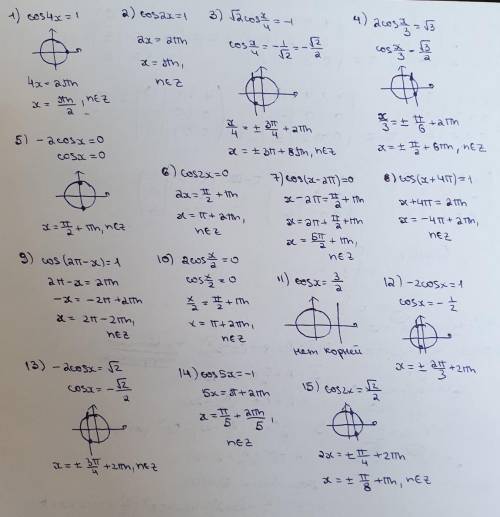 1) cos4x = 1
4x = 2πn
x = πn/2, n∈Z
2) cos2x = 1
2x = 2πn
x = πn,
n∈Z
3) √2cos x/4 = -1
cos x/4 = -1/√2 = -√2/2
x/4 = ± 3π/4 + 2πn
x = ± 3π + 8πn, n∈Z
4) 2cos x/3 = √3
cos x/3 = √3/2
x/3 = ± π/6 + 2πn
x = ± π/2 + 6πn, n∈Z
5) -2cosx = 0
cosx = 0
x = π/2 + πn, n∈Z
6) cos2x = 0
2x = π/2 + πn
x = π + 2πn,
n∈Z
7) cos(x - 2π) = 0
x - 2π = π/2 + πn
x = 2π + π/2 + πn
x = 5π/2 + πn,
n∈Z
8) cos(x + 4π) = 1
x + 4π = 2πn
x = -4π + 2πn,
n∈Z
9) cos(2π - x) = 1
2π - x = 2πn
-x = -2π + 2πn
x = 2π - 2πn,
n∈Z
10) 2cos x/2 = 0
cos x/2 = 0
x/2 = π/2 + πn
x = π + 2πn,
n∈Z
11) cosx = 3/2
нет корней
12) -2cosx = 1
cosx = -1/2
x = ± 2π/3 + 2πn
13) -2cosx = √2
cosx = -√2/2
x = ± 3π/4 + 2πn, n∈Z
14) cos5x = -1
5x = π + 2πn
x = π/5 + 2πn/5,
n∈Z
15) cos2x = √2/2
2x = ± π/4 + 2πn
x = ± π/8 + πn, n∈Z